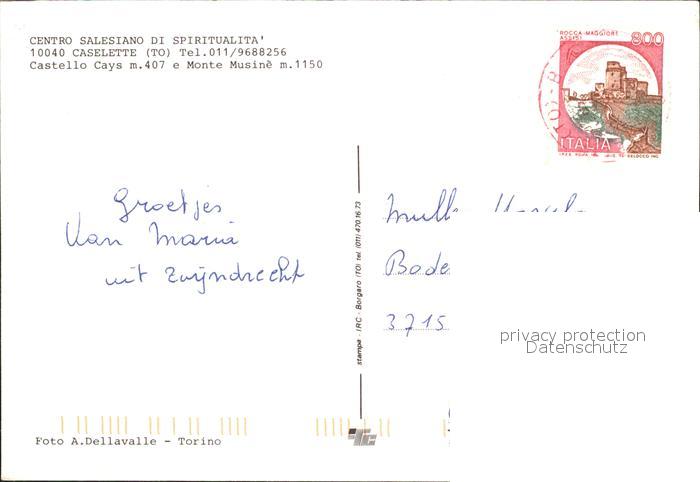 CENTRO SALESIANO DI SPIRITUALITA'
10040 CASELETTE (TO) Tel.011/9688256
Castello Cays m.407 e Monte Musinè m.1150
ROCCA MAGGIORE
ASSISI
800
ITALIA
Groetjes
Van Maria
uit Zwijndrecht
stampa - IRC - Borgaro (TO) tel. (011) 470.16.73
Bade
3715
privacy protection
Datenschutz
Foto A.Dellavalle - Torino